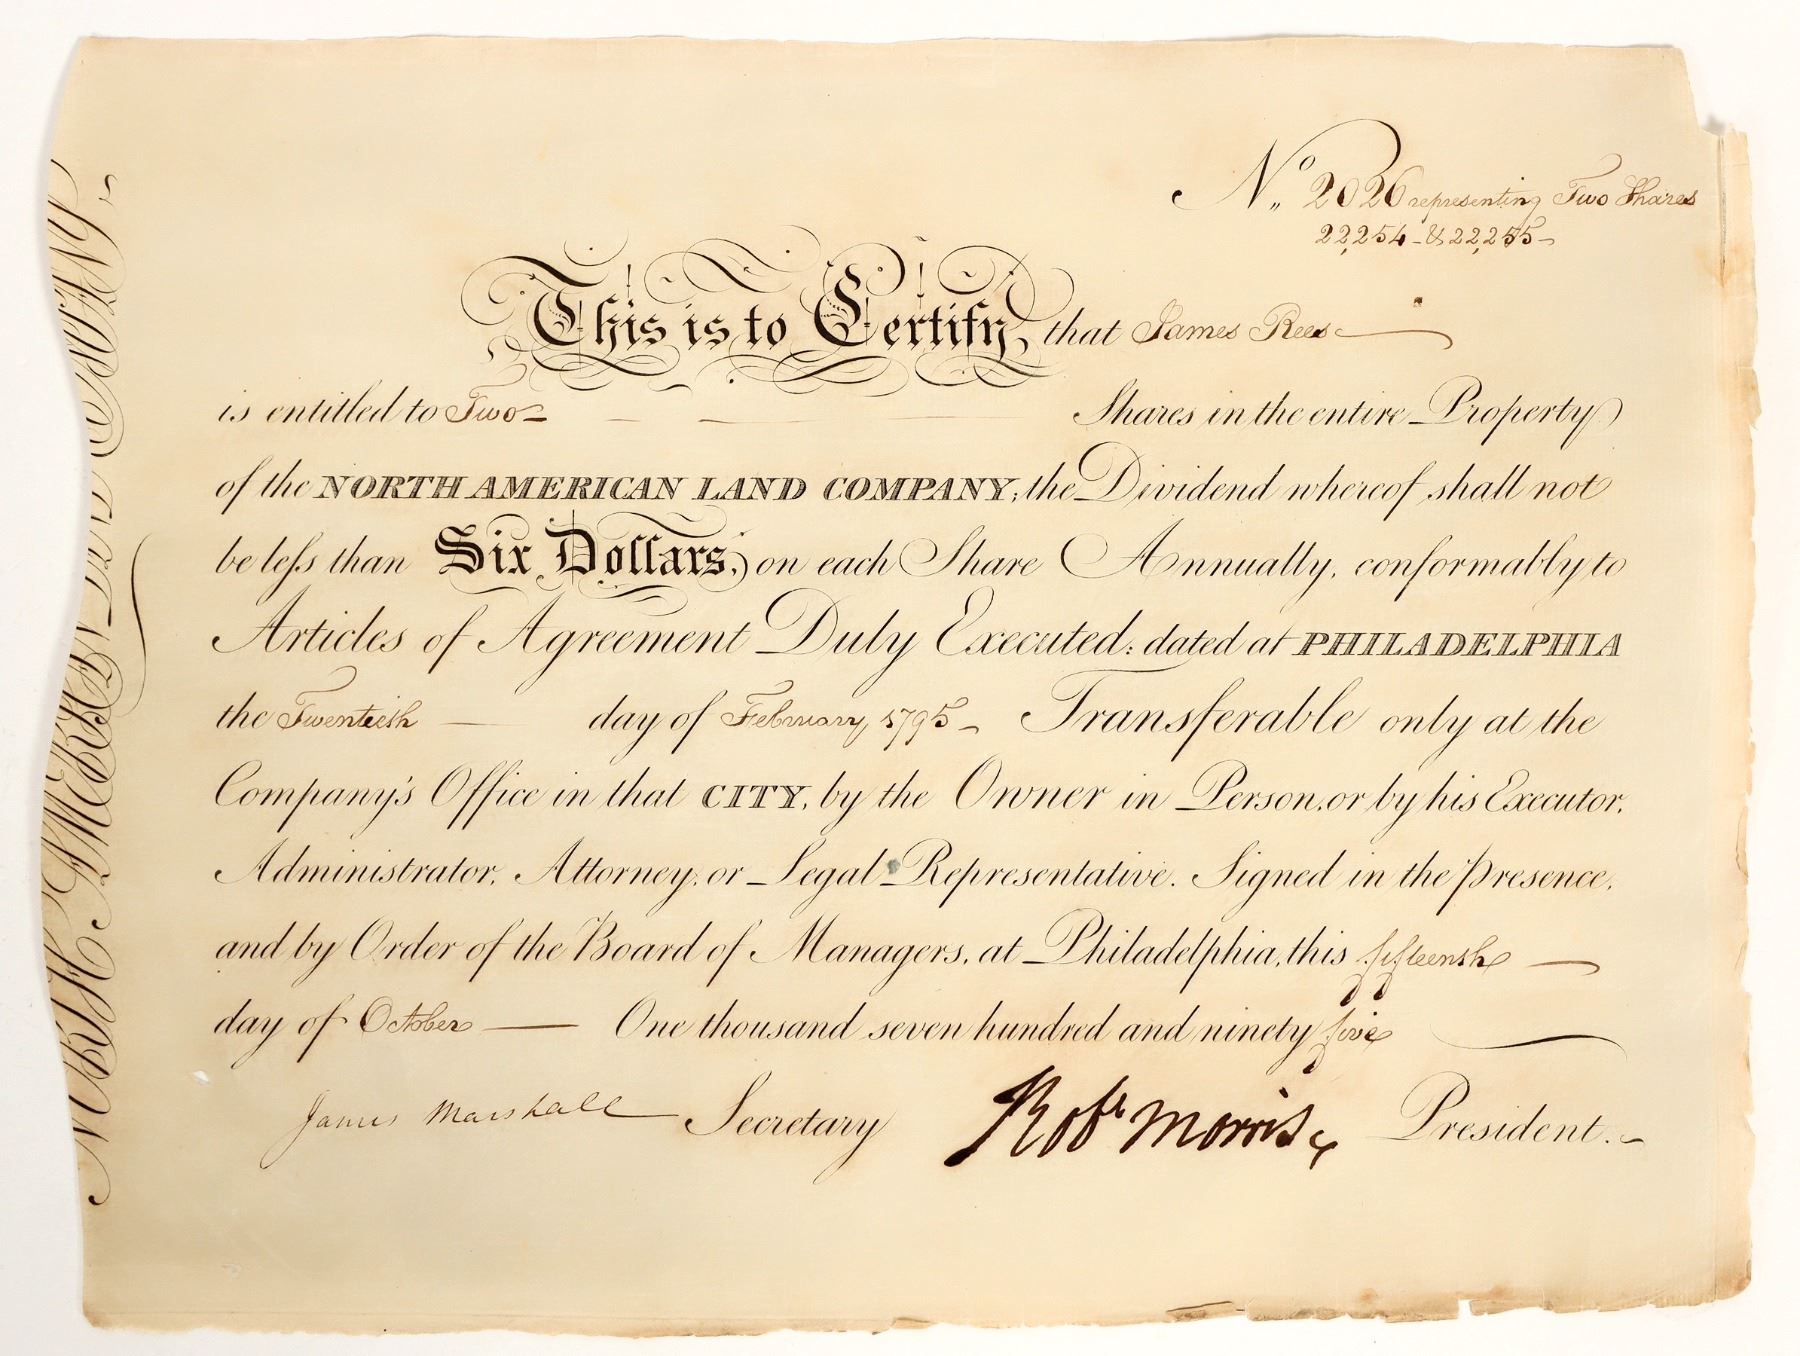 No. 2026 representing Two Shares
22,254 & 22,255
This is to Certify, that James Rees
is entitled to Two Shares in the entire Property
of the NORTH AMERICAN LAND COMPANY; the Dividend whereof shall not
be leſs than Six Dollars, on each Share Annually, conformably to
Articles of Agreement Duly Executed: dated at PHILADELPHIA
the Twentieth day of February 1795 Transferable only at the
Company's Office in that CITY, by the Owner in Person, or by his Executor,
Administrator, Attorney, or Legal Representative. Signed in the presence,
and by Order of the Board of Managers, at Philadelphia, this fifteenth
day of October One thousand seven hundred and ninety five
James Marshall Secretary Robt Morris President.
NORTH AMERICAN LAND COMPANY